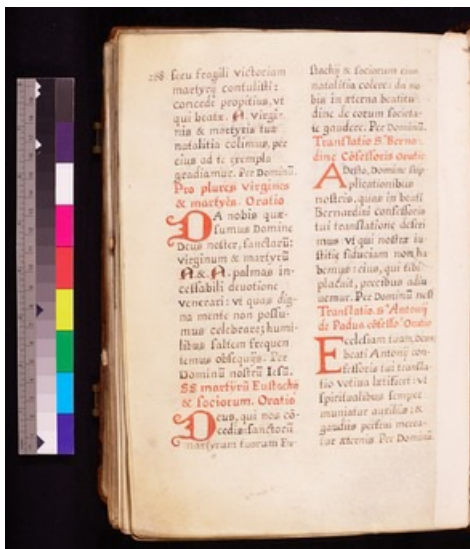 288 sexu fragili victoriam
martyrij contulisti:
concede propitius, vt
qui beatæ .N. virgi-
nis & martyris tuæ
natalitia colimus, per
eius ad te exempla
gradiamur. Per Dominū.
Pro plures virgines
& martyrēs. Oratio
DA nobis quæ-
sumus Domine
Deus noster, sanctarū:
virginum & martyrū
.N.&.N. palmas in-
cessabili deuotione
venerari: vt quas dig-
na mente non possu-
mus celebrare; humi-
libus saltem frequen
temus obsequijs. Per
Dominū nostrū Iesū.
SS martyrū Eustachij
& sociorum. Oratio
Deus, qui nos cō-
cedis: sanctorū
martyrum tuorum Eu-
stachij & sociorum eius
natalitia colere: da no
bis in æterna beatitu
dine de eorum societa-
te gaudere. Per Dominū.
Translatio S. Berna:
dine Cōfessoris Oratio
ADesto, Domine sup
plicationibus
nostris, quas in beati
Bernardini confessoris
tui translatione deferi
mus vt qui nostræ iu-
stitiæ fiduciam non ha
bemus: eius, qui tibi
placuit, precibus adiu
uemur. Per Dominū nost
Translatio S. Antonij
de Padua cōfesso. Oratio
Ecclesiam tuam, Deus,
beati Antonij con-
fessoris tui transla-
tio votiua lætificet: vt
spiritualibus semper
muniatur auxilijs: &
gaudijs perfrui merea-
tur æternis. Per Dominū.